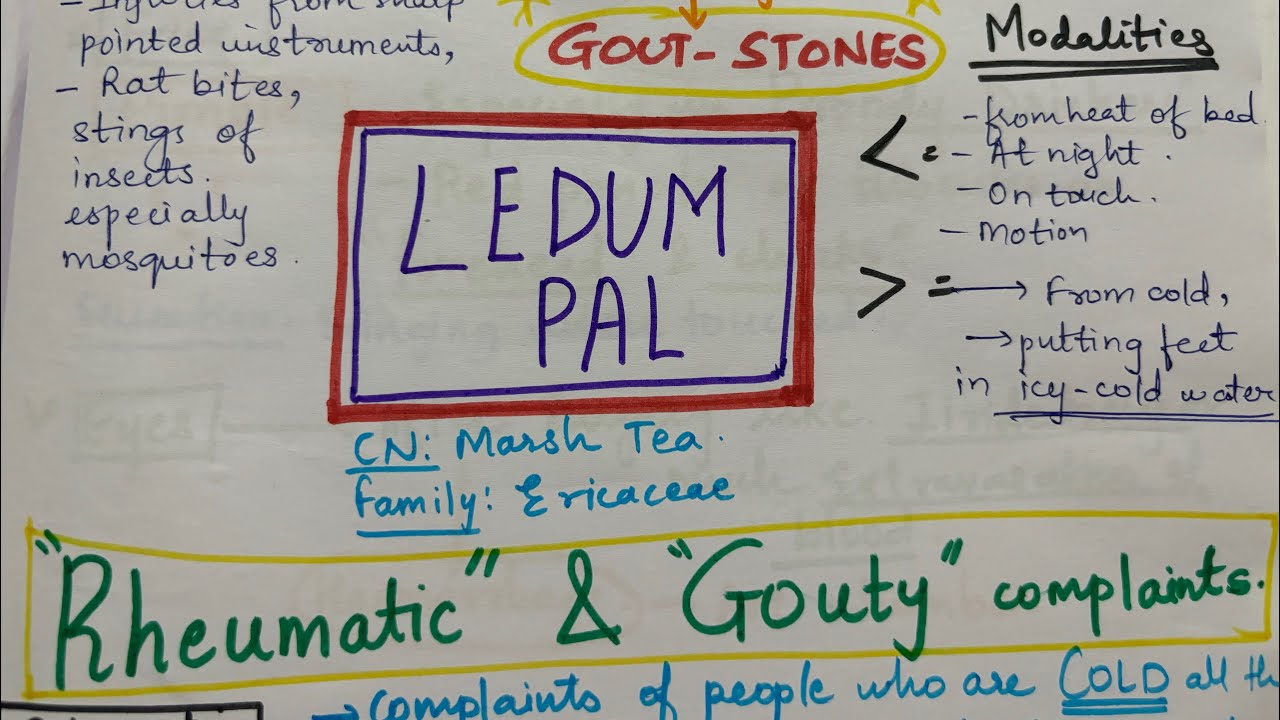 - Injuries from sharp
pointed instruments,
- Rat bites,
stings of
insects.
especially
mosquitoes.
GOUT-STONES
LEDUM
PAL
CN: Marsh Tea.
family: Ericaceae
Modalities
< = - from heat of bed.
- At night.
- On touch.
- Motion
> = → From cold,
→ putting feet
in icy-cold water
"Rheumatic" & "Gouty" complaints.
→ complaints of people who are COLD all